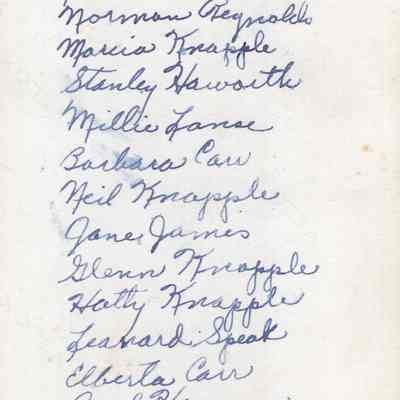 Norman Reynolds
Marcia Knapple
Stanley Haworth
Millie Lanse
Barbara Carr
Neil Knapple
Jane James
Glenn Knapple
Hatty Knapple
Leonard Speak
Elberta Carr